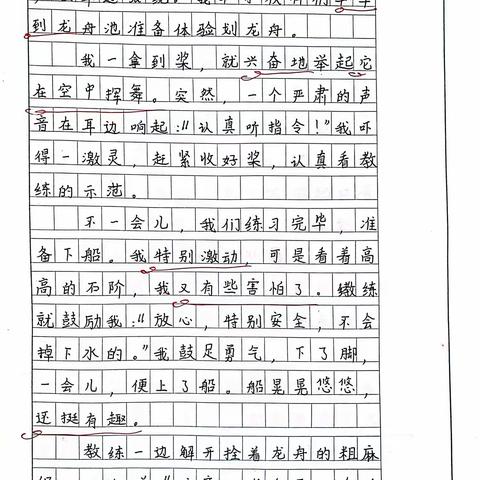 到龙舟池准备体验划龙舟。
我一拿到桨，就兴奋地举起它
在空中挥舞。突然，一个严肃的声
音在耳边响起：“认真听指令！”我吓
得一激灵，赶紧收好桨，认真看教
练的示范。
不一会儿，我们练习完毕，准
备下船。我特别激动，可是看着高
高的石阶，我又有些害怕了。教练
就鼓励我：“放心，特别安全，不会
掉下水的。”我鼓足勇气，下了脚，
一会儿，便上了船。船晃晃悠悠，
还挺有趣。
教练一边解开拴着龙舟的粗麻